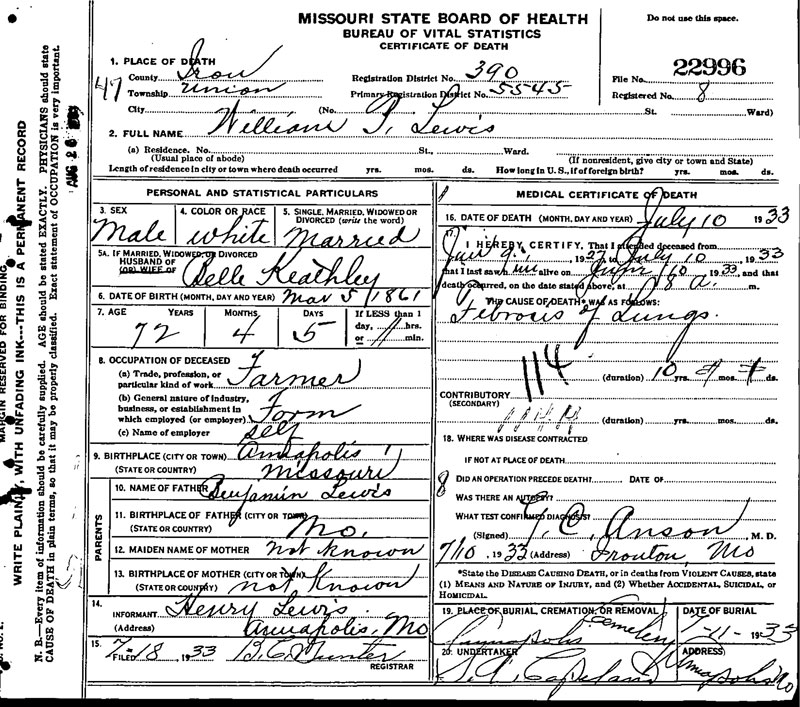 MISSOURI STATE BOARD OF HEALTH
BUREAU OF VITAL STATISTICS
CERTIFICATE OF DEATH
Do not use this space.
1. PLACE OF DEATH
County Iron Registration District No. 390 File No. 22996
47 Township Union Primary Registration District No. 5545 Registered No. 8
City (No. St. Ward)
2. FULL NAME William P. Lewis
(a) Residence. No. St., Ward.
(Usual place of abode) (If nonresident, give city or town and State)
Length of residence in city or town where death occurred yrs. mos. ds. How long in U. S., if of foreign birth? yrs. mos. ds.
PERSONAL AND STATISTICAL PARTICULARS
3. SEX 4. COLOR OR RACE 5. SINGLE, MARRIED, WIDOWED OR DIVORCED (write the word)
Male white Married
5A. IF MARRIED, WIDOWED OR DIVORCED
HUSBAND OF
(OR) WIFE OF Belle Keathley
6. DATE OF BIRTH (MONTH, DAY AND YEAR) Mar 5 1861
7. AGE YEARS MONTHS DAYS If LESS than 1
72 4 5 day, hrs.
or min.
8. OCCUPATION OF DECEASED
(a) Trade, profession, or
particular kind of work Farmer
(b) General nature of industry,
business, or establishment in
which employed (or employer) Farm
(c) Name of employer Self
9. BIRTHPLACE (CITY OR TOWN) Annapolis
(STATE OR COUNTRY) Missouri
PARENTS
10. NAME OF FATHER Benjamin Lewis
11. BIRTHPLACE OF FATHER (CITY OR TOWN)
(STATE OR COUNTRY) Mo.
12. MAIDEN NAME OF MOTHER not known
13. BIRTHPLACE OF MOTHER (CITY OR TOWN)
(STATE OR COUNTRY) not Known
14. INFORMANT Henry Lewis
(Address) Annapolis, Mo
15. FILED 7-18 1933 B.C. REGISTRAR
MEDICAL CERTIFICATE OF DEATH
16. DATE OF DEATH (MONTH, DAY AND YEAR) July 10 1933
17. I HEREBY CERTIFY, That I attended deceased from
, 19 to July 10 1933
that I last saw him alive on June 10 1933, and that
death occurred, on the date stated above, at 8 a. m.
THE CAUSE OF DEATH* WAS AS FOLLOWS:
Febrosis of Lungs.
114
(duration) 10 yrs. mos. ds.
CONTRIBUTORY
(SECONDARY)
(duration) yrs. mos. ds.
18. WHERE WAS DISEASE CONTRACTED
IF NOT AT PLACE OF DEATH
8 DID AN OPERATION PRECEDE DEATH? DATE OF
WAS THERE AN AUTOPSY?
WHAT TEST CONFIRMED DIAGNOSIS?
(Signed) Anson M. D.
7/10 1933 (Address) Ironton, Mo
*State the DISEASE CAUSING DEATH, or in deaths from VIOLENT CAUSES, state
(1) MEANS AND NATURE OF INJURY, and (2) Whether ACCIDENTAL, SUICIDAL, or
HOMICIDAL.
19. PLACE OF BURIAL, CREMATION, OR REMOVAL DATE OF BURIAL
Annapolis Cemetery 7-11- 1933
20. UNDERTAKER ADDRESS
Copeland Annapolis Mo
MARGIN RESERVED FOR BINDING
WRITE PLAINLY, WITH UNFADING INK---THIS IS A PERMANENT RECORD
N. B.—Every item of information should be carefully supplied. AGE should be stated EXACTLY. PHYSICIANS should state
CAUSE OF DEATH in plain terms, so that it may be properly classified. Exact statement of OCCUPATION is very important.